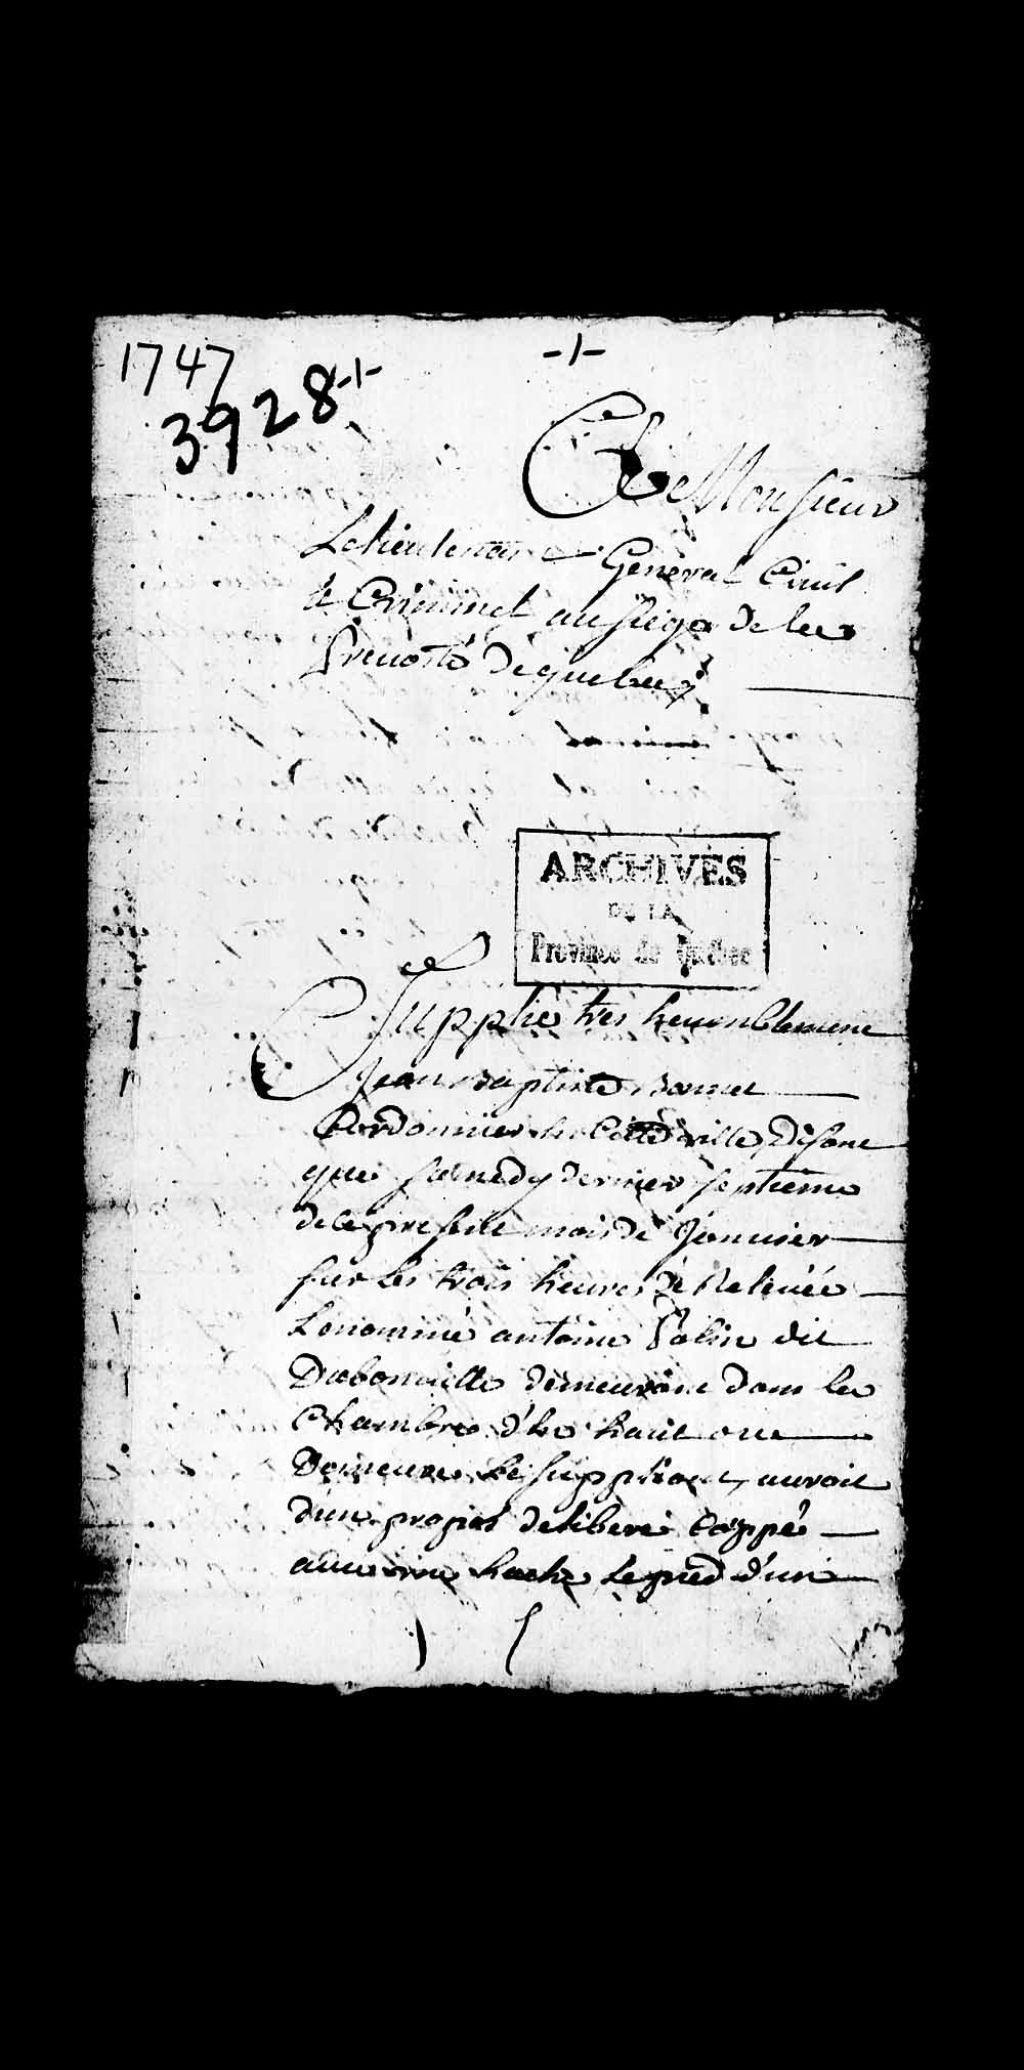 1747
3928 -/-
-/-
A Monsieur
Le lieutenant General Civil
& Criminel au siege de la
Prevosté de quebec
ARCHIVES
DE LA
Province de Québec
Supplie tres heumblement
Jean Baptiste Bonnet
Cordonnier en Cette ville Disant
que samedy dernier septieme
de ce present mois de Janvier
sur les trois heures de Relevée
Le nommé antoine Palin dit
Dabonville demeurant dans la
Chambre d'en haut ou
Demeure le suppliant, auroit
d'un propos deliberé Coppé
avec une hache le pied d'un